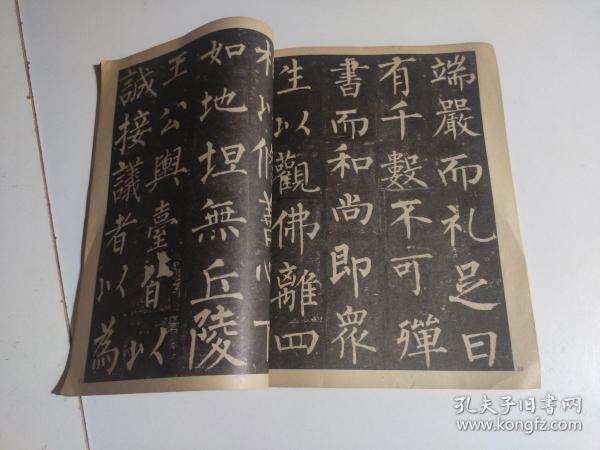 端嚴而礼足日
有千數不可殫
書而和尚即眾
生以觀佛離四
相以修善心下
如地坦無丘陵
王公輿臺皆以
誠接議者以為
孔夫子旧书网
www.kongfz.com